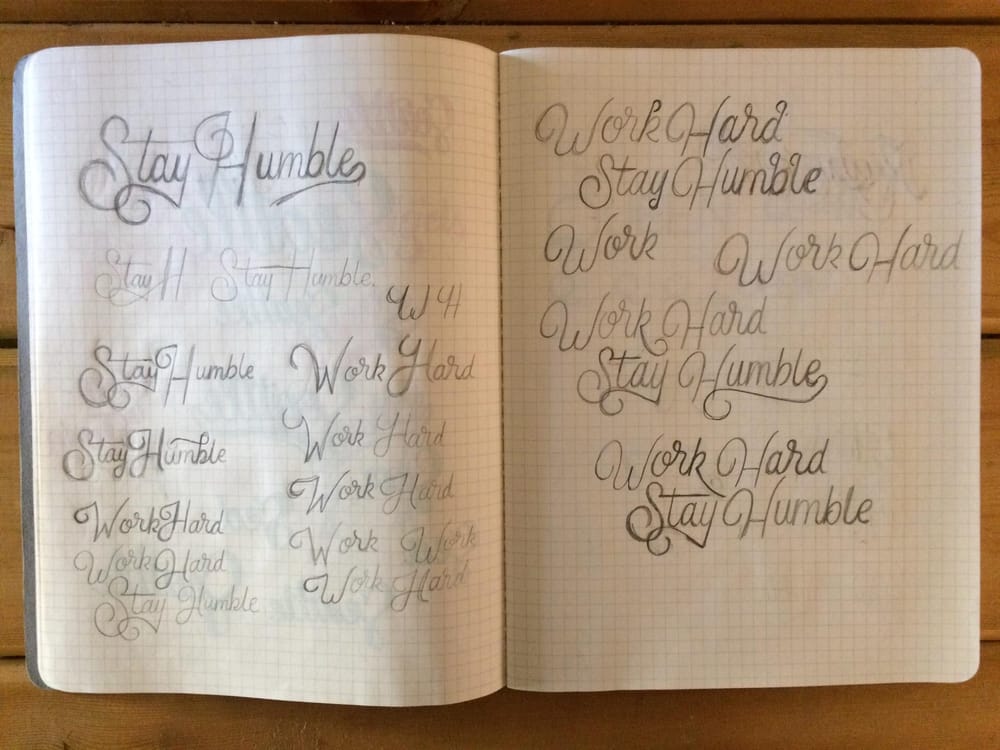 Stay Humble
Stay H Stay Humble.
W H
Stay Humble
Work Hard
Stay Humble
Work Hard
Work Hard
Work Hard
Work Hard
Stay Humble
Work Hard
Work Work
Work Hard
Work Hard
Stay Humble
Work Work Hard
Work Hard
Stay Humble
Work Hard
Stay Humble